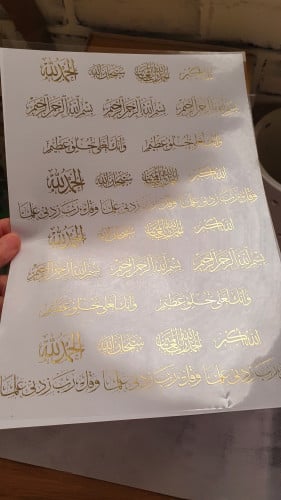 الله أكبر سبحان الله الحمد لله
بسم الله الرحمن الرحيم بسم الله الرحمن الرحيم بسم الله الرحمن الرحيم
وإنك لعلى خلق عظيم وإنك لعلى خلق عظيم
الله أكبر سبحان الله الحمد لله
وقل رب زدني علما وقل رب زدني علما وقل رب زدني علما
الله أكبر سبحان الله الحمد لله
بسم الله الرحمن الرحيم بسم الله الرحمن الرحيم بسم الله الرحمن الرحيم
وإنك لعلى خلق عظيم وإنك لعلى خلق عظيم
الله أكبر سبحان الله الحمد لله
رب زدني علما وقل رب زدني علما وقل رب زدني علما